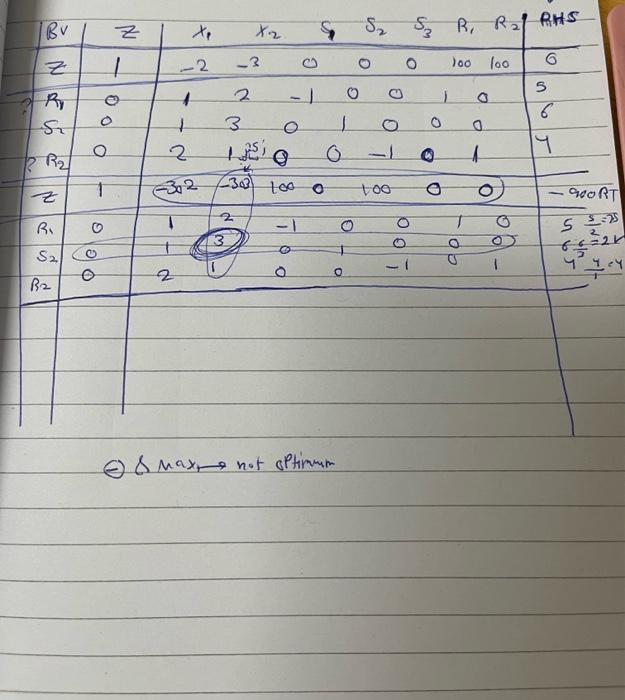 BV Z X₁ X₂ S₁ S₂ S₃ R₁ R₂ RHS
Z 1 -2 -3 0 0 0 100 100 0
? R₁ 0 1 2 -1 0 0 1 0 5
S₂ 0 1 3 0 1 0 0 0 6
? R₂ 0 2 1 0 0 -1 0 1 4
Z 1 -302 -303 100 0 100 0 0 -900
R₁ 0 1 2 -1 0 0 1 0 5 5/2=
S₂ 0 1 3 0 1 0 0 0 6 6/3=2
R₂ 0 2 1 0 0 -1 0 1 4 4/1=4
⊖ Max → not optimum